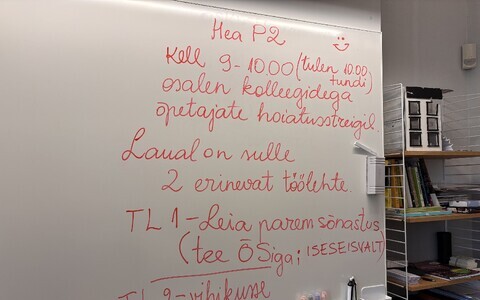 Hea P2
Kell 9-10.00 (tulen 10.00 tundi)
osalen kolleegidega
õpetajate hoiatusstreigil.
Laual on sulle
2 erinevat töölehte.
TL 1-Leia parem sõnastus
(tee ÕSiga; ISESEISVALT)
TL 2-vihikusse